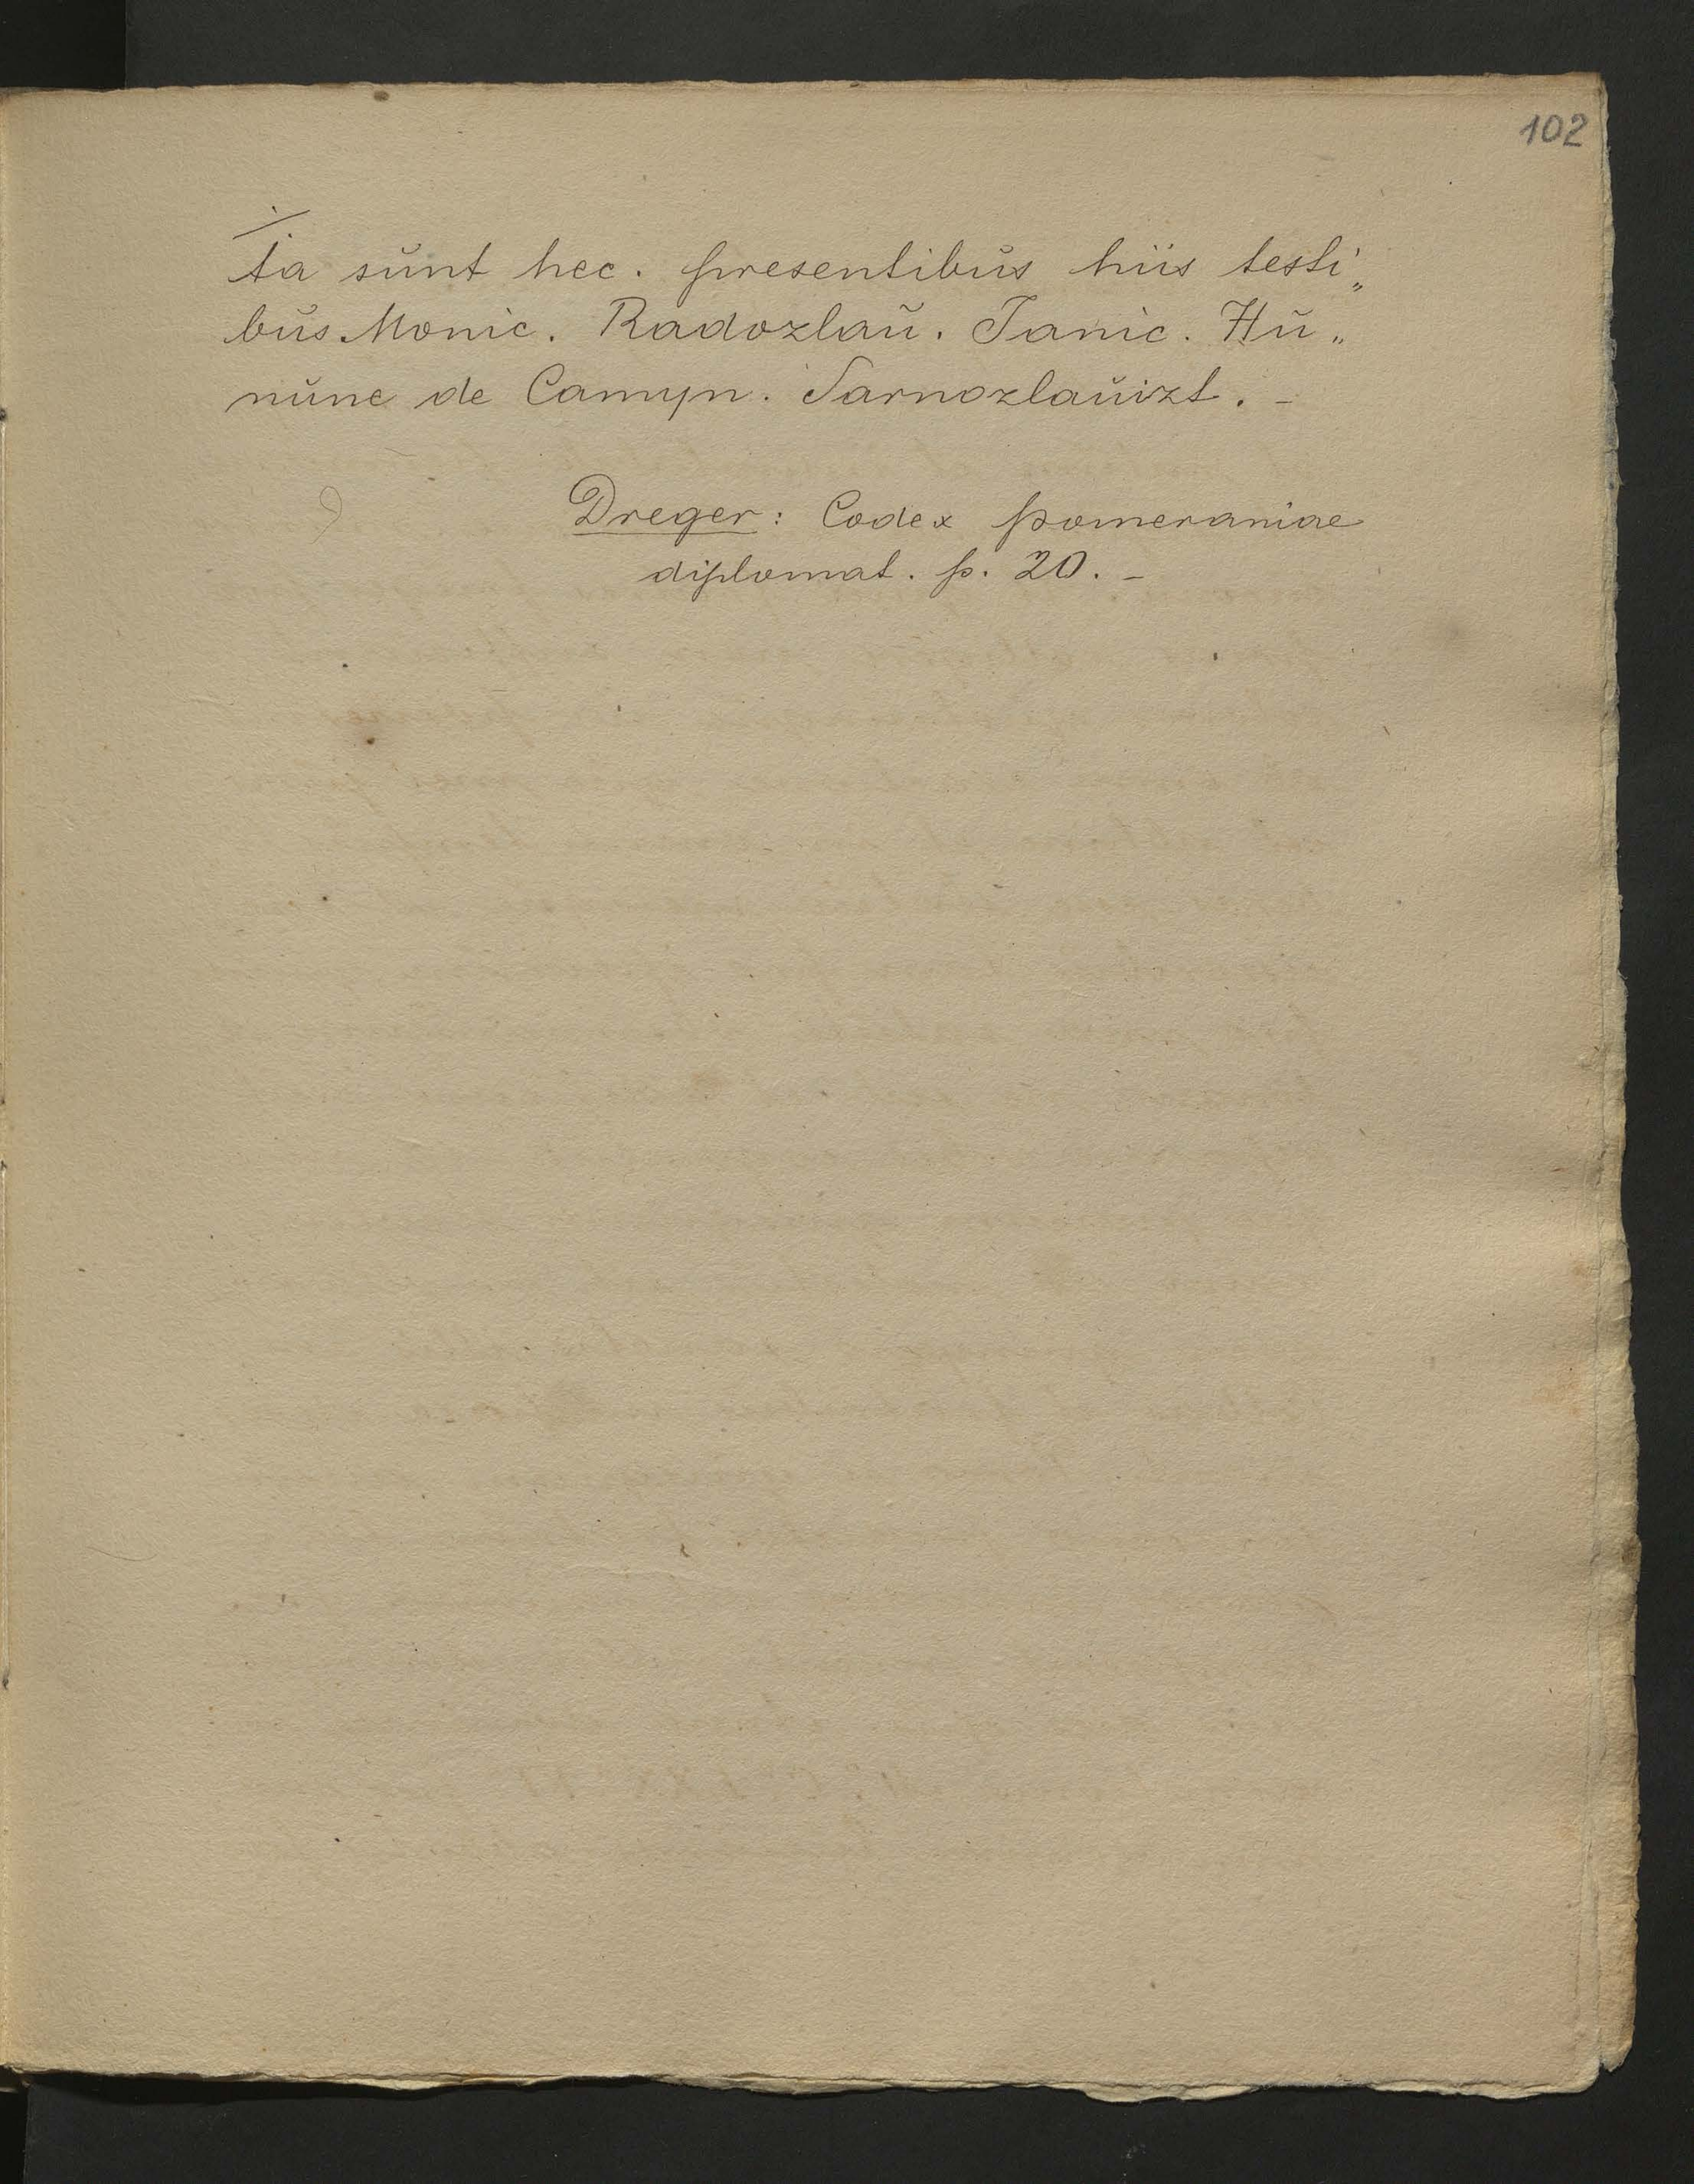 102
ta sŭnt hec. presentibŭs hiis testi„
bŭs Monic. Radozlaŭ. Janic. Hŭ„
nŭne de Camyn. Sarnozlaŭizt. –
Dreger: Codex pomeraniae
diplomat. p. 20. –